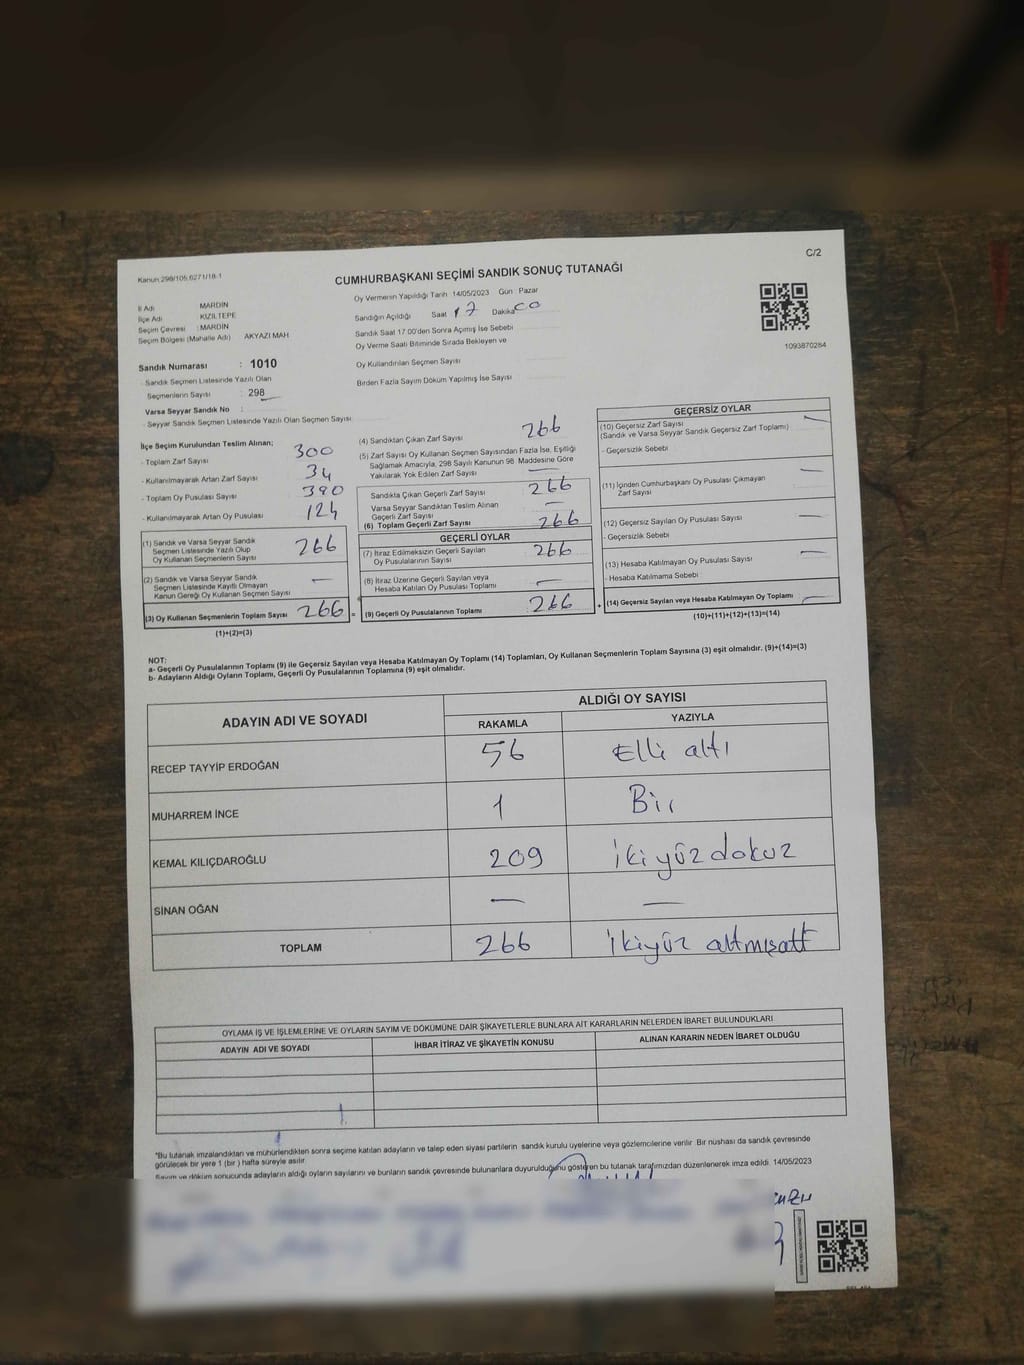 Kanun 298/105,6271/18-1
C/2
CUMHURBAŞKANI SEÇİMİ SANDIK SONUÇ TUTANAĞI
İl Adı MARDİN
İlçe Adı KIZILTEPE
Seçim Çevresi : MARDİN
Seçim Bölgesi (Mahalle Adı) AKYAZI MAH
Sandık Numarası : 1010
- Sandık Seçmen Listesinde Yazılı Olan
Seçmenlerin Sayısı : 298
Varsa Seyyar Sandık No :
- Seyyar Sandık Seçmen Listesinde Yazılı Olan Seçmen Sayısı
Oy Vermenin Yapıldığı Tarih 14/05/2023 Gün : Pazar
Sandığın Açıldığı Saat 17 Dakika 00
Sandık Saat 17.00'den Sonra Açımış İse Sebebi
Oy Verme Saati Bitiminde Sırada Bekleyen ve
Oy Kullandırılan Seçmen Sayısı
Birden Fazla Sayım Döküm Yapılmış İse Sayısı
1093870284
İlçe Seçim Kurulundan Teslim Alınan;
- Toplam Zarf Sayısı 300
- Kullanılmayarak Artan Zarf Sayısı 34
- Toplam Oy Pusulası Sayısı 390
- Kullanılmayarak Artan Oy Pusulası 124
(1) Sandık ve Varsa Seyyar Sandık
Seçmen Listesinde Yazılı Olup
Oy Kullanan Seçmenlerin Sayısı 266
(2) Sandık ve Varsa Seyyar Sandık
Seçmen Listesinde Kayıtlı Olmayan
Kanun Gereği Oy Kullanan Seçmen Sayısı —
(3) Oy Kullanan Seçmenlerin Toplam Sayısı 266 =
(1)+(2)=(3)
(4) Sandıktan Çıkan Zarf Sayısı 266
(5) Zarf Sayısı Oy Kullanan Seçmen Sayısından Fazla İse, Eşitliği
Sağlamak Amacıyla, 298 Sayılı Kanunun 98. Maddesine Göre
Yakılarak Yok Edilen Zarf Sayısı —
Sandıkta Çıkan Geçerli Zarf Sayısı 266
Varsa Seyyar Sandıktan Teslim Alınan
Geçerli Zarf Sayısı —
(6) Toplam Geçerli Zarf Sayısı 266
GEÇERLİ OYLAR
(7) İtiraz Edilmeksizin Geçerli Sayılan
Oy Pusulalarının Sayısı 266
(8) İtiraz Üzerine Geçerli Sayılan veya
Hesaba Katılan Oy Pusulası Toplamı —
(9) Geçerli Oy Pusulalarının Toplamı 266 +
GEÇERSİZ OYLAR
(10) Geçersiz Zarf Sayısı —
(Sandık ve Varsa Seyyar Sandık Geçersiz Zarf Toplamı)
- Geçersizlik Sebebi
(11) İçinden Cumhurbaşkanı Oy Pusulası Çıkmayan —
Zarf Sayısı
(12) Geçersiz Sayılan Oy Pusulası Sayısı —
- Geçersizlik Sebebi
(13) Hesaba Katılmayan Oy Pusulası Sayısı —
- Hesaba Katılmama Sebebi
(14) Geçersiz Sayılan veya Hesaba Katılmayan Oy Toplamı —
(10)+(11)+(12)+(13)=(14)
NOT:
a- Geçerli Oy Pusulalarının Toplamı (9) ile Geçersiz Sayılan veya Hesaba Katılmayan Oy Toplamı (14) Toplamları, Oy Kullanan Seçmenlerin Toplam Sayısına (3) eşit olmalıdır. (9)+(14)=(3)
b- Adayların Aldığı Oyların Toplamı, Geçerli Oy Pusulalarının Toplamına (9) eşit olmalıdır.
ADAYIN ADI VE SOYADI ALDIĞI OY SAYISI
RAKAMLA YAZIYLA
RECEP TAYYİP ERDOĞAN 56 Elli altı
MUHARREM İNCE 1 Bir
KEMAL KILIÇDAROĞLU 209 ikiyüzdokuz
SİNAN OĞAN — —
TOPLAM 266 ikiyüz altmışaltı
OYLAMA İŞ VE İŞLEMLERİNE VE OYLARIN SAYIM VE DÖKÜMÜNE DAİR ŞİKAYETLERLE BUNLARA AİT KARARLARIN NELERDEN İBARET BULUNDUKLARI
ADAYIN ADI VE SOYADI İHBAR İTİRAZ VE ŞİKAYETİN KONUSU ALINAN KARARIN NEDEN İBARET OLDUĞU
*Bu tutanak imzalandıktan ve mühürlendikten sonra seçime katılan adayların ve talep eden siyasi partilerin sandık kurulu üyelerine veya gözlemcilerine verilir. Bir nüshası da sandık çevresinde
görülecek bir yere 1 (bir) hafta süreyle asılır.
Sayım ve döküm sonucunda adayların aldığı oyların sayılarını ve bunların sandık çevresinde bulunanlara duyurulduğunu gösteren bu tutanak tarafımızdan düzenlenerek imza edildi. 14/05/2023